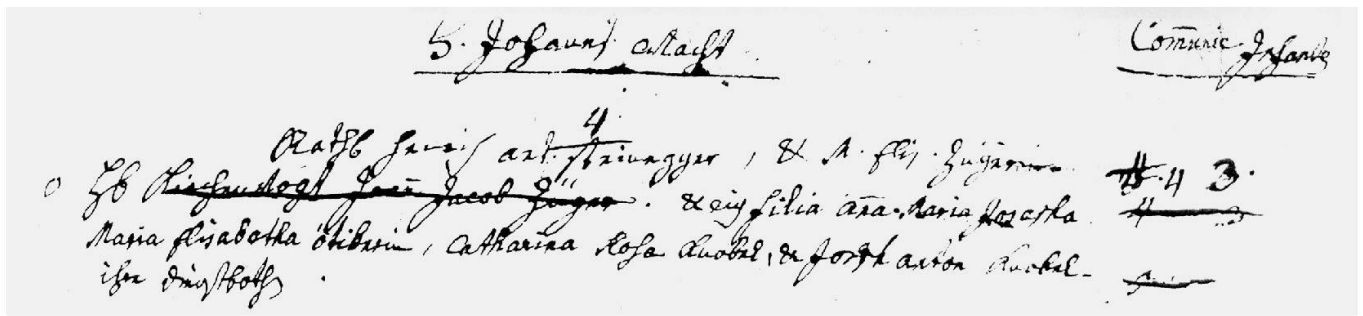 S. Johans Nacht Comunic. Infante
4
Rathh Henrich ant. Steinegger, & M. Elis. Zügerin 4 3.
Hh Kirchenvogt Jacob Züger. & eius filia aña Maria Josepha
Maria Elisabetha Catharina Rosa Knobel, & Joseph anton Knobel
ihre dienstboth